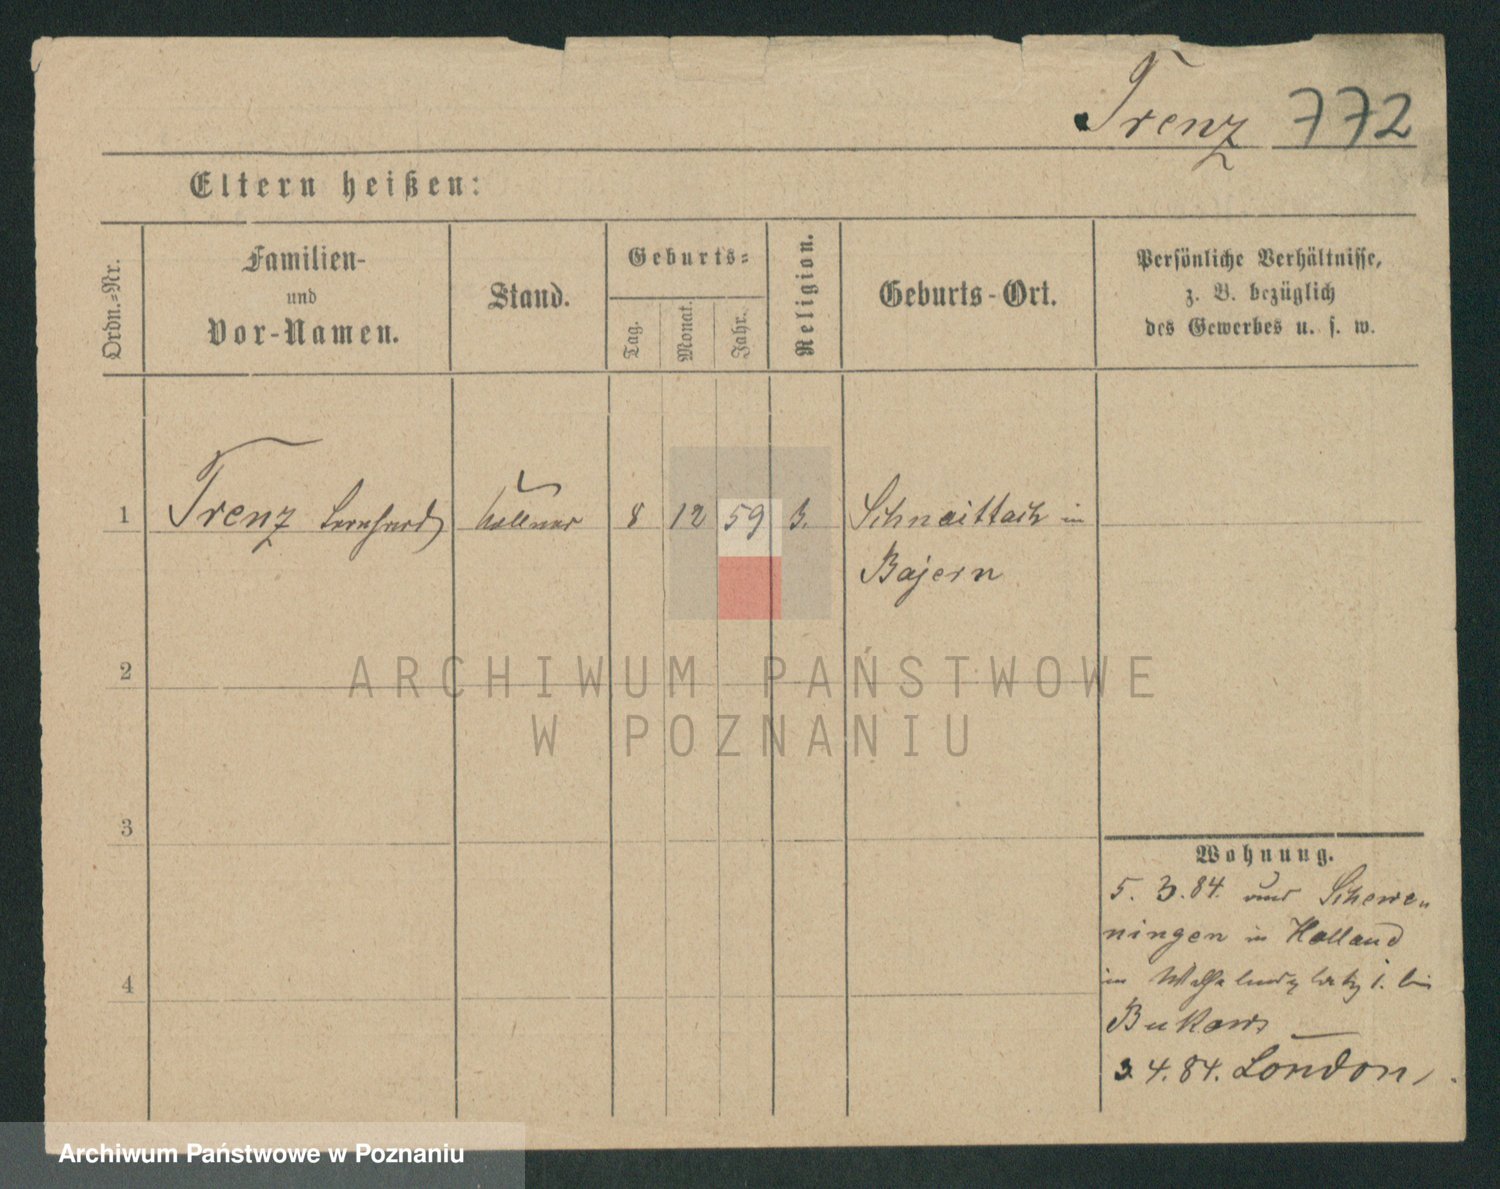 Trenz 772
Eltern heißen:
Ordn.=Nr.
Familien-
und
Vor-Namen.
Stand.
Geburts=
Tag.
Monat.
Jahr.
Religion.
Geburts-Ort.
Persönliche Verhältnisse,
z. B. bezüglich
des Gewerbes u. s. w.
1 Trenz Bernhard Kellner 8 12 59 Schnaittach in
Bajern
2
ARCHIWUM PAŃSTWOWE
W POZNANIU
3
Wohnung.
5. 3. 84. Scheve-
ningen in Holland
4 in
Bukow
3. 4. 84. London
Archiwum Państwowe w Poznaniu